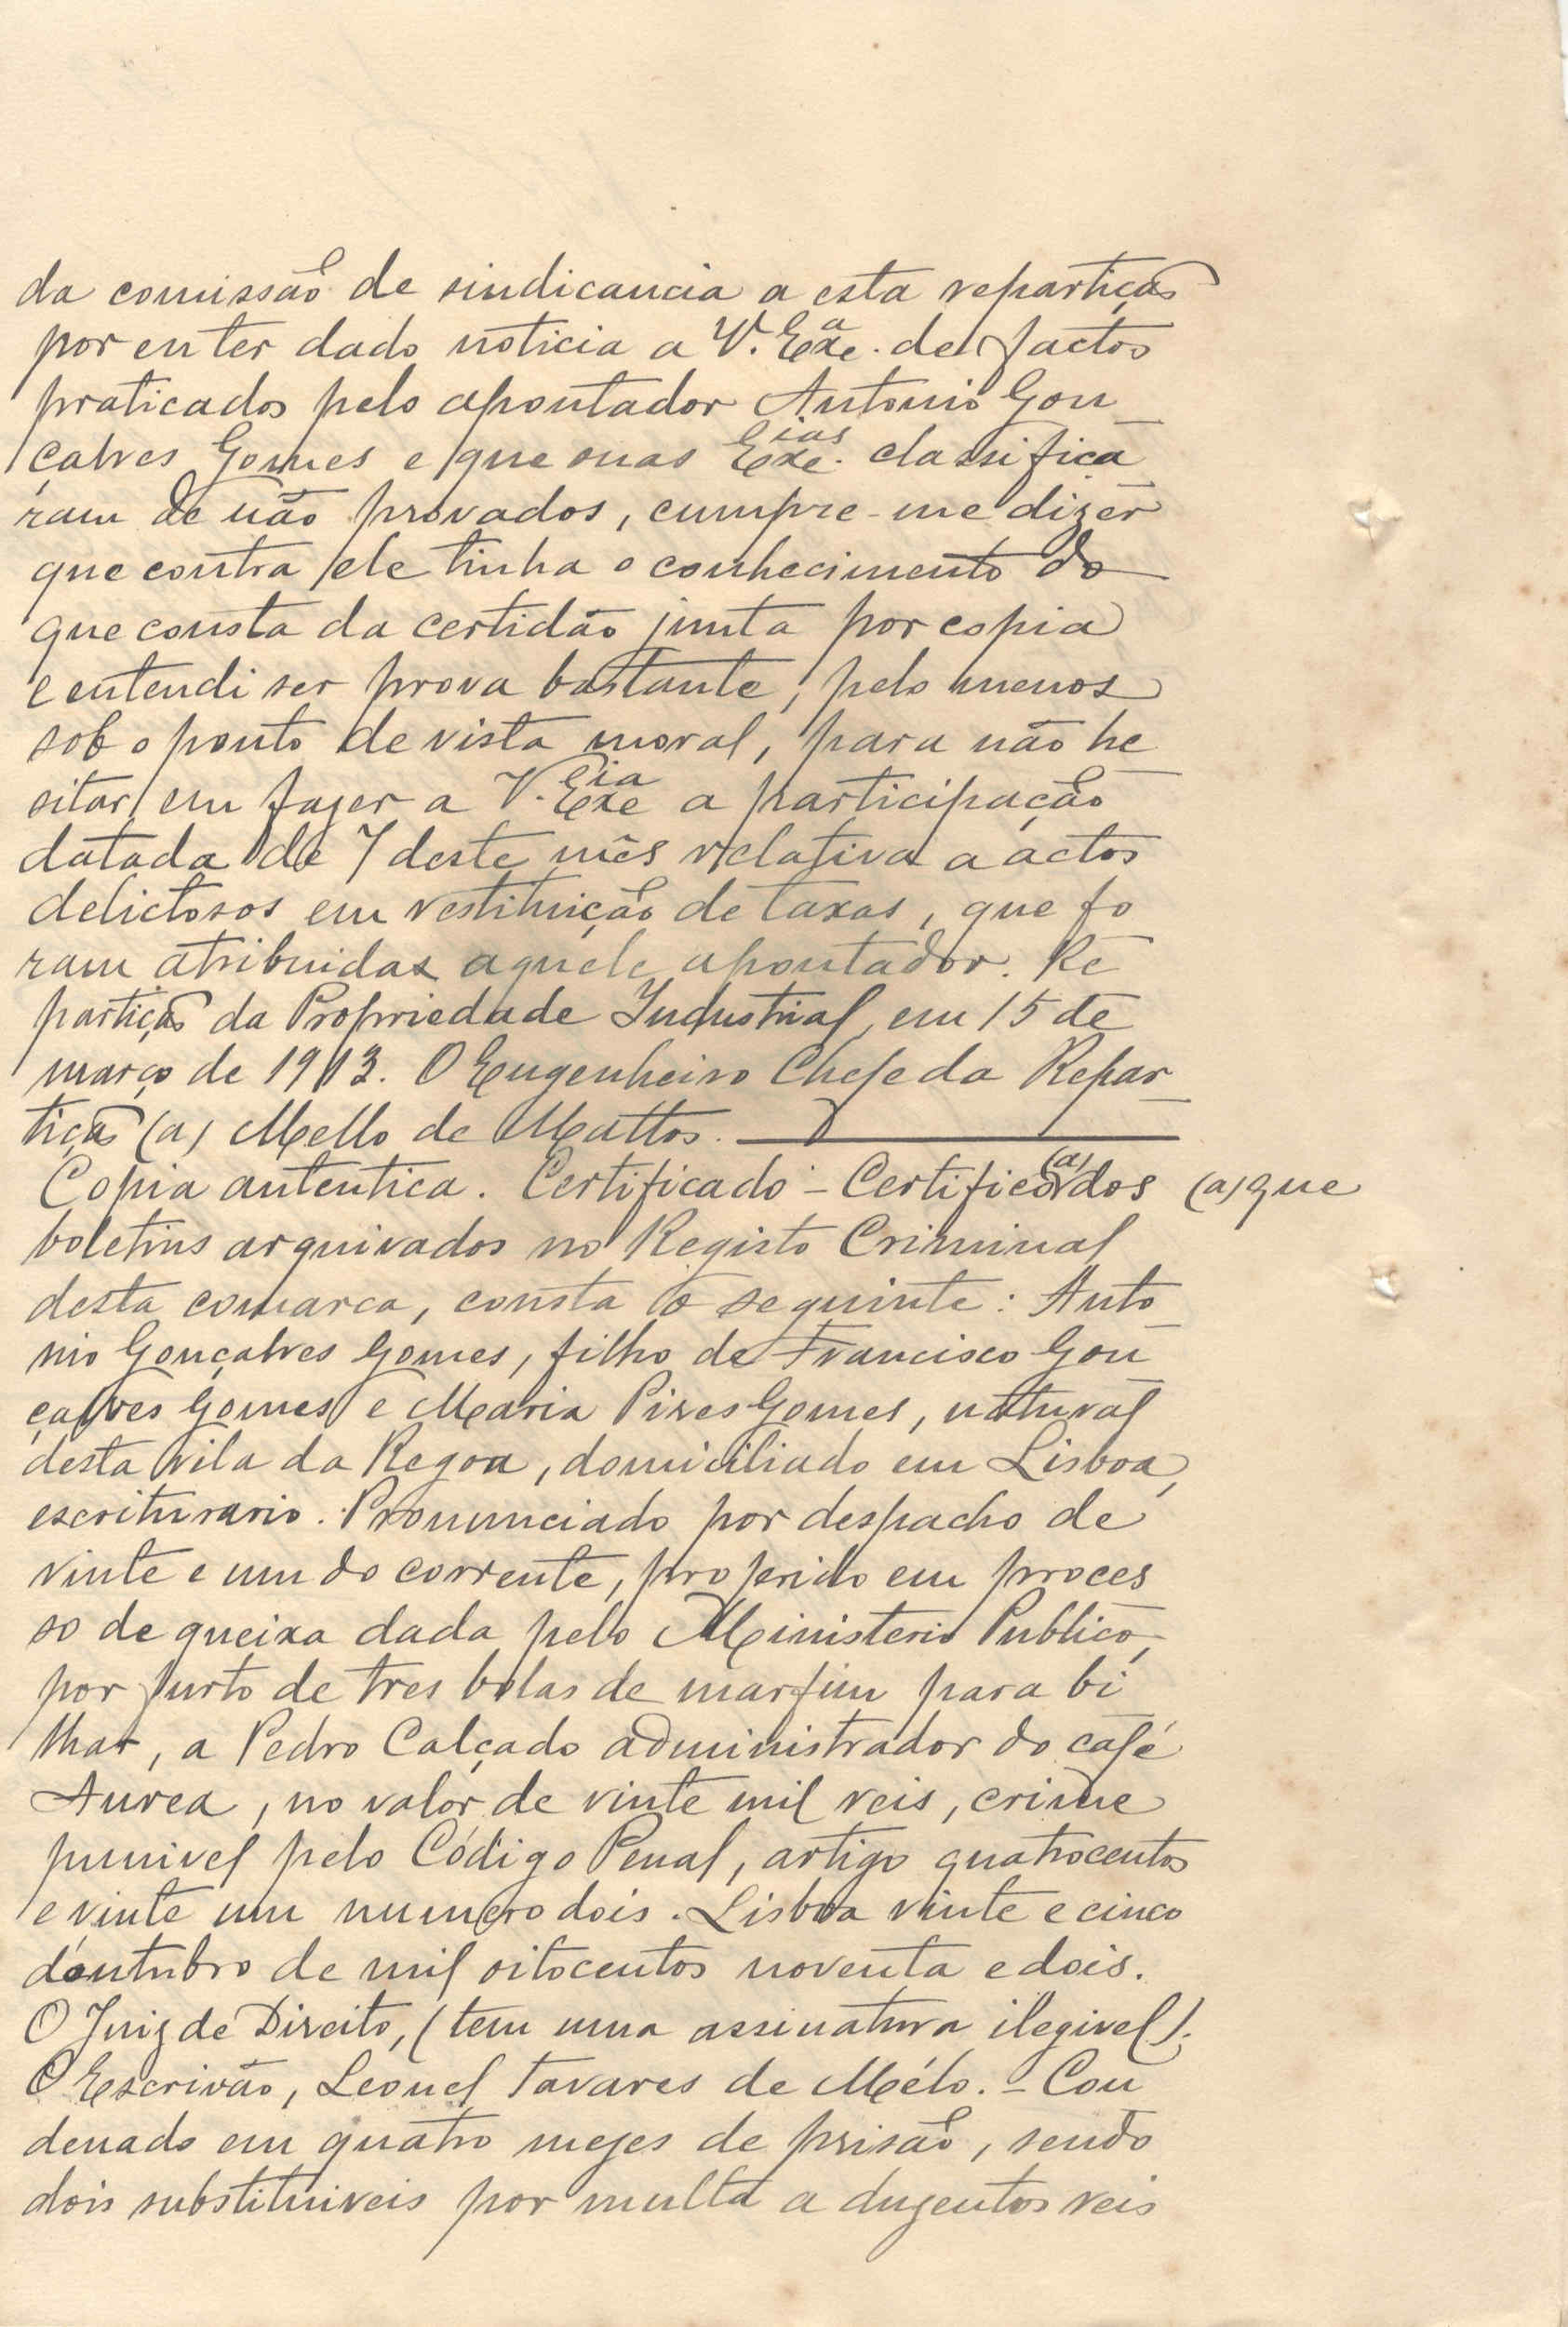 da comissão de sindicancia a esta repartição
por eu ter dado noticia a V. Exª. de factos
praticados pelo apontador Antonio Gon_
çalves Gomes e que suas Exᵉⁱᵃˢ. classifica_
ram de não provados, cumpre-me dizer
que contra ele tinha o conhecimento do
que consta da certidão junta por copia
e entendi ser prova bastante, pelo menos
sob o ponto de vista moral, para não he_
sitar em fazer a V. Exᵉⁱᵃ a participação
datada de 7 deste mês relativa a actos
delictosos em restituição de taxas, que fo
ram atribuidas aquele apontador. Re_
partição da Propriedade Industrial, em 15 de
março de 1913. O Engenheiro Chefe da Repar_
tição (a) Mello de Mattos.
Copia autentica. Certificado - Certifico (a) dos (a) que
boletins arquivados no Registo Criminal
desta comarca, consta o seguinte: Anto_
nio Gonçalves Gomes, filho de Francisco Gon_
çalves Gomes e Maria Pires Gomes, natural
desta vila da Regoa, domiciliado em Lisboa,
escriturario. Pronunciado por despacho de
vinte e um do corrente, proferido em proces
so de queixa dada pelo Ministerio Publico,
por furto de tres bolas de marfim para bi_
lhar, a Pedro Calçado administrador do café
Aurea, no valor de vinte mil reis, crime
punivel pelo Código Penal, artigo quatrocentos
e vinte um numero dois. Lisboa vinte e cinco
d'outubro de mil oitocentos noventa e dois.
O Juiz de Direito, (tem uma assinatura ilegivel).
O Escrivão, Leonel Tavares de Mélo. - Con_
denado em quatro mezes de prisão, sendo
dois substituiveis por multa a duzentos reis